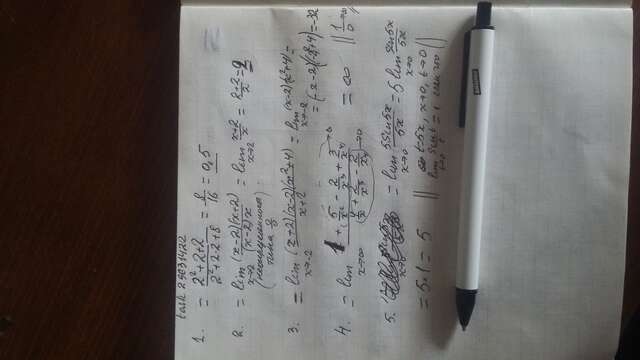 task 25631422
1. = 2²+2+2 / 2²+2·2+8 = 8/16 = 0,5
2. = lim x→2 (x-2)(x+2) / (x-2)x = lim x→2 x+2 / x = 2+2 / 2 = 2
типа 0/0
3. = lim x→-2 (x+2)(x-2)(x²+4) / x+2 = lim x→-2 (x-2)(x²+4) =
= (-2-2)(4+4) = -32
4. = lim x→∞ 1 + 5/x² - 2/x³ + 3/x⁴ →0 / 4/x + 2/x³ - 2/x⁴ →0 = ∞ || 1/0
5. = lim x→0 5sin5x / 5x = 5 lim x→0 sin5x / 5x
= 5·1 = 5 || t=5x, x→0, t→0
lim t→0 sint / t = 1